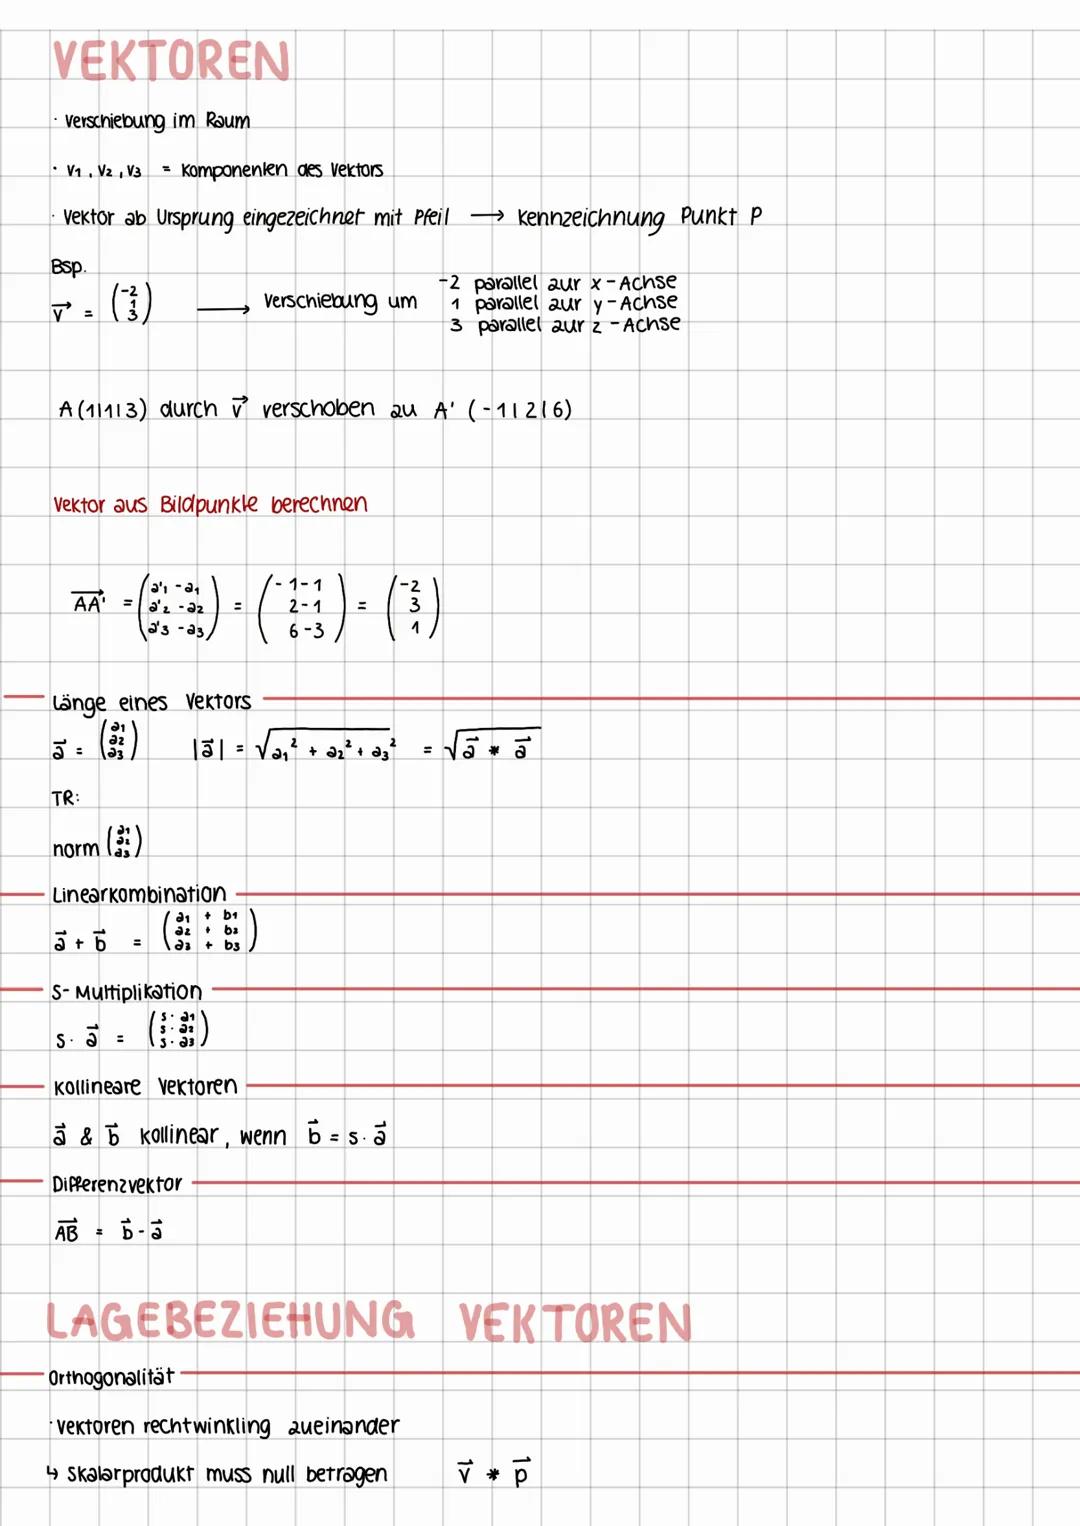 VEKTOREN
· Verschiebung im Raum
· V₁, V₂, V₃ = Komponenten des Vektors
· Vektor ab Ursprung eingezeichnet mit Pfeil → Kennzeichnung Punkt P
Bsp.
v⃗ = (-2 1 3) → Verschiebung um -2 parallel zur x-Achse
1 parallel zur y-Achse
3 parallel zur z-Achse
A(1|1|3) durch v⃗ verschoben zu A' (-1|2|6)
Vektor aus Bildpunkte berechnen
AA'⃗ = (a'₁ - a₁ a'₂ - a₂ a'₃ - a₃) = (-1-1 2-1 6-3) = (-2 3 1)
Länge eines Vektors
a⃗ = (a₁ a₂ a₃) |a⃗| = √(a₁² + a₂² + a₃²) = √(a⃗ * a⃗)
TR:
norm (a₁ a₂ a₃)
Linearkombination
a⃗ + b⃗ = (a₁ + b₁ a₂ + b₂ a₃ + b₃)
S-Multiplikation
s · a⃗ = (s·a₁ s·a₂ s·a₃)
Kollineare Vektoren
a⃗ & b⃗ kollinear, wenn b⃗ = s·a⃗
Differenzvektor
AB⃗ = b⃗ - a⃗
LAGEBEZIEHUNG VEKTOREN
Orthogonalität
· Vektoren rechtwinkling zueinander
↳ Skalarprodukt muss null betragen v⃗ * p⃗